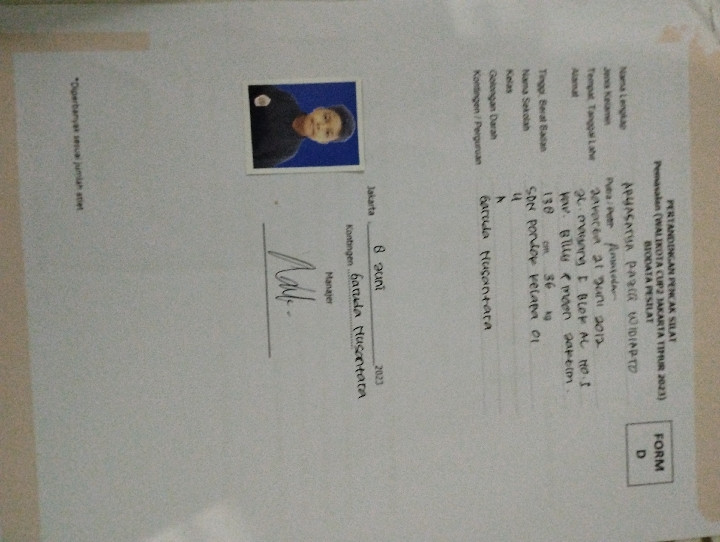 PERTANDINGAN PENCAK SILAT
Pemasalan (WALIKOTA CUP2 JAKARTA TIMUR 2023)
BIODATA PESILAT
FORM
D
Nama Lengkap
Jenis Kelamin Putra / Putri
Tempat, Tanggal Lahir Jakarta 21 Juni 2012
Alamat JL. mayang I BLOK AC NO.5
Kav. Billy & moon Jaktim.
Tinggi, Berat Badan 138 cm 36 kg
Nama Sekolah SDN Pondok Kelapa 01
Kelas 4
Golongan Darah A
Kontingen / Perguruan Garuda Nusantara
Jakarta 8 Juni 2023
Kontingen Garuda Nusantara
Manajer
*Diperbanyak sesuai jumlah atlet